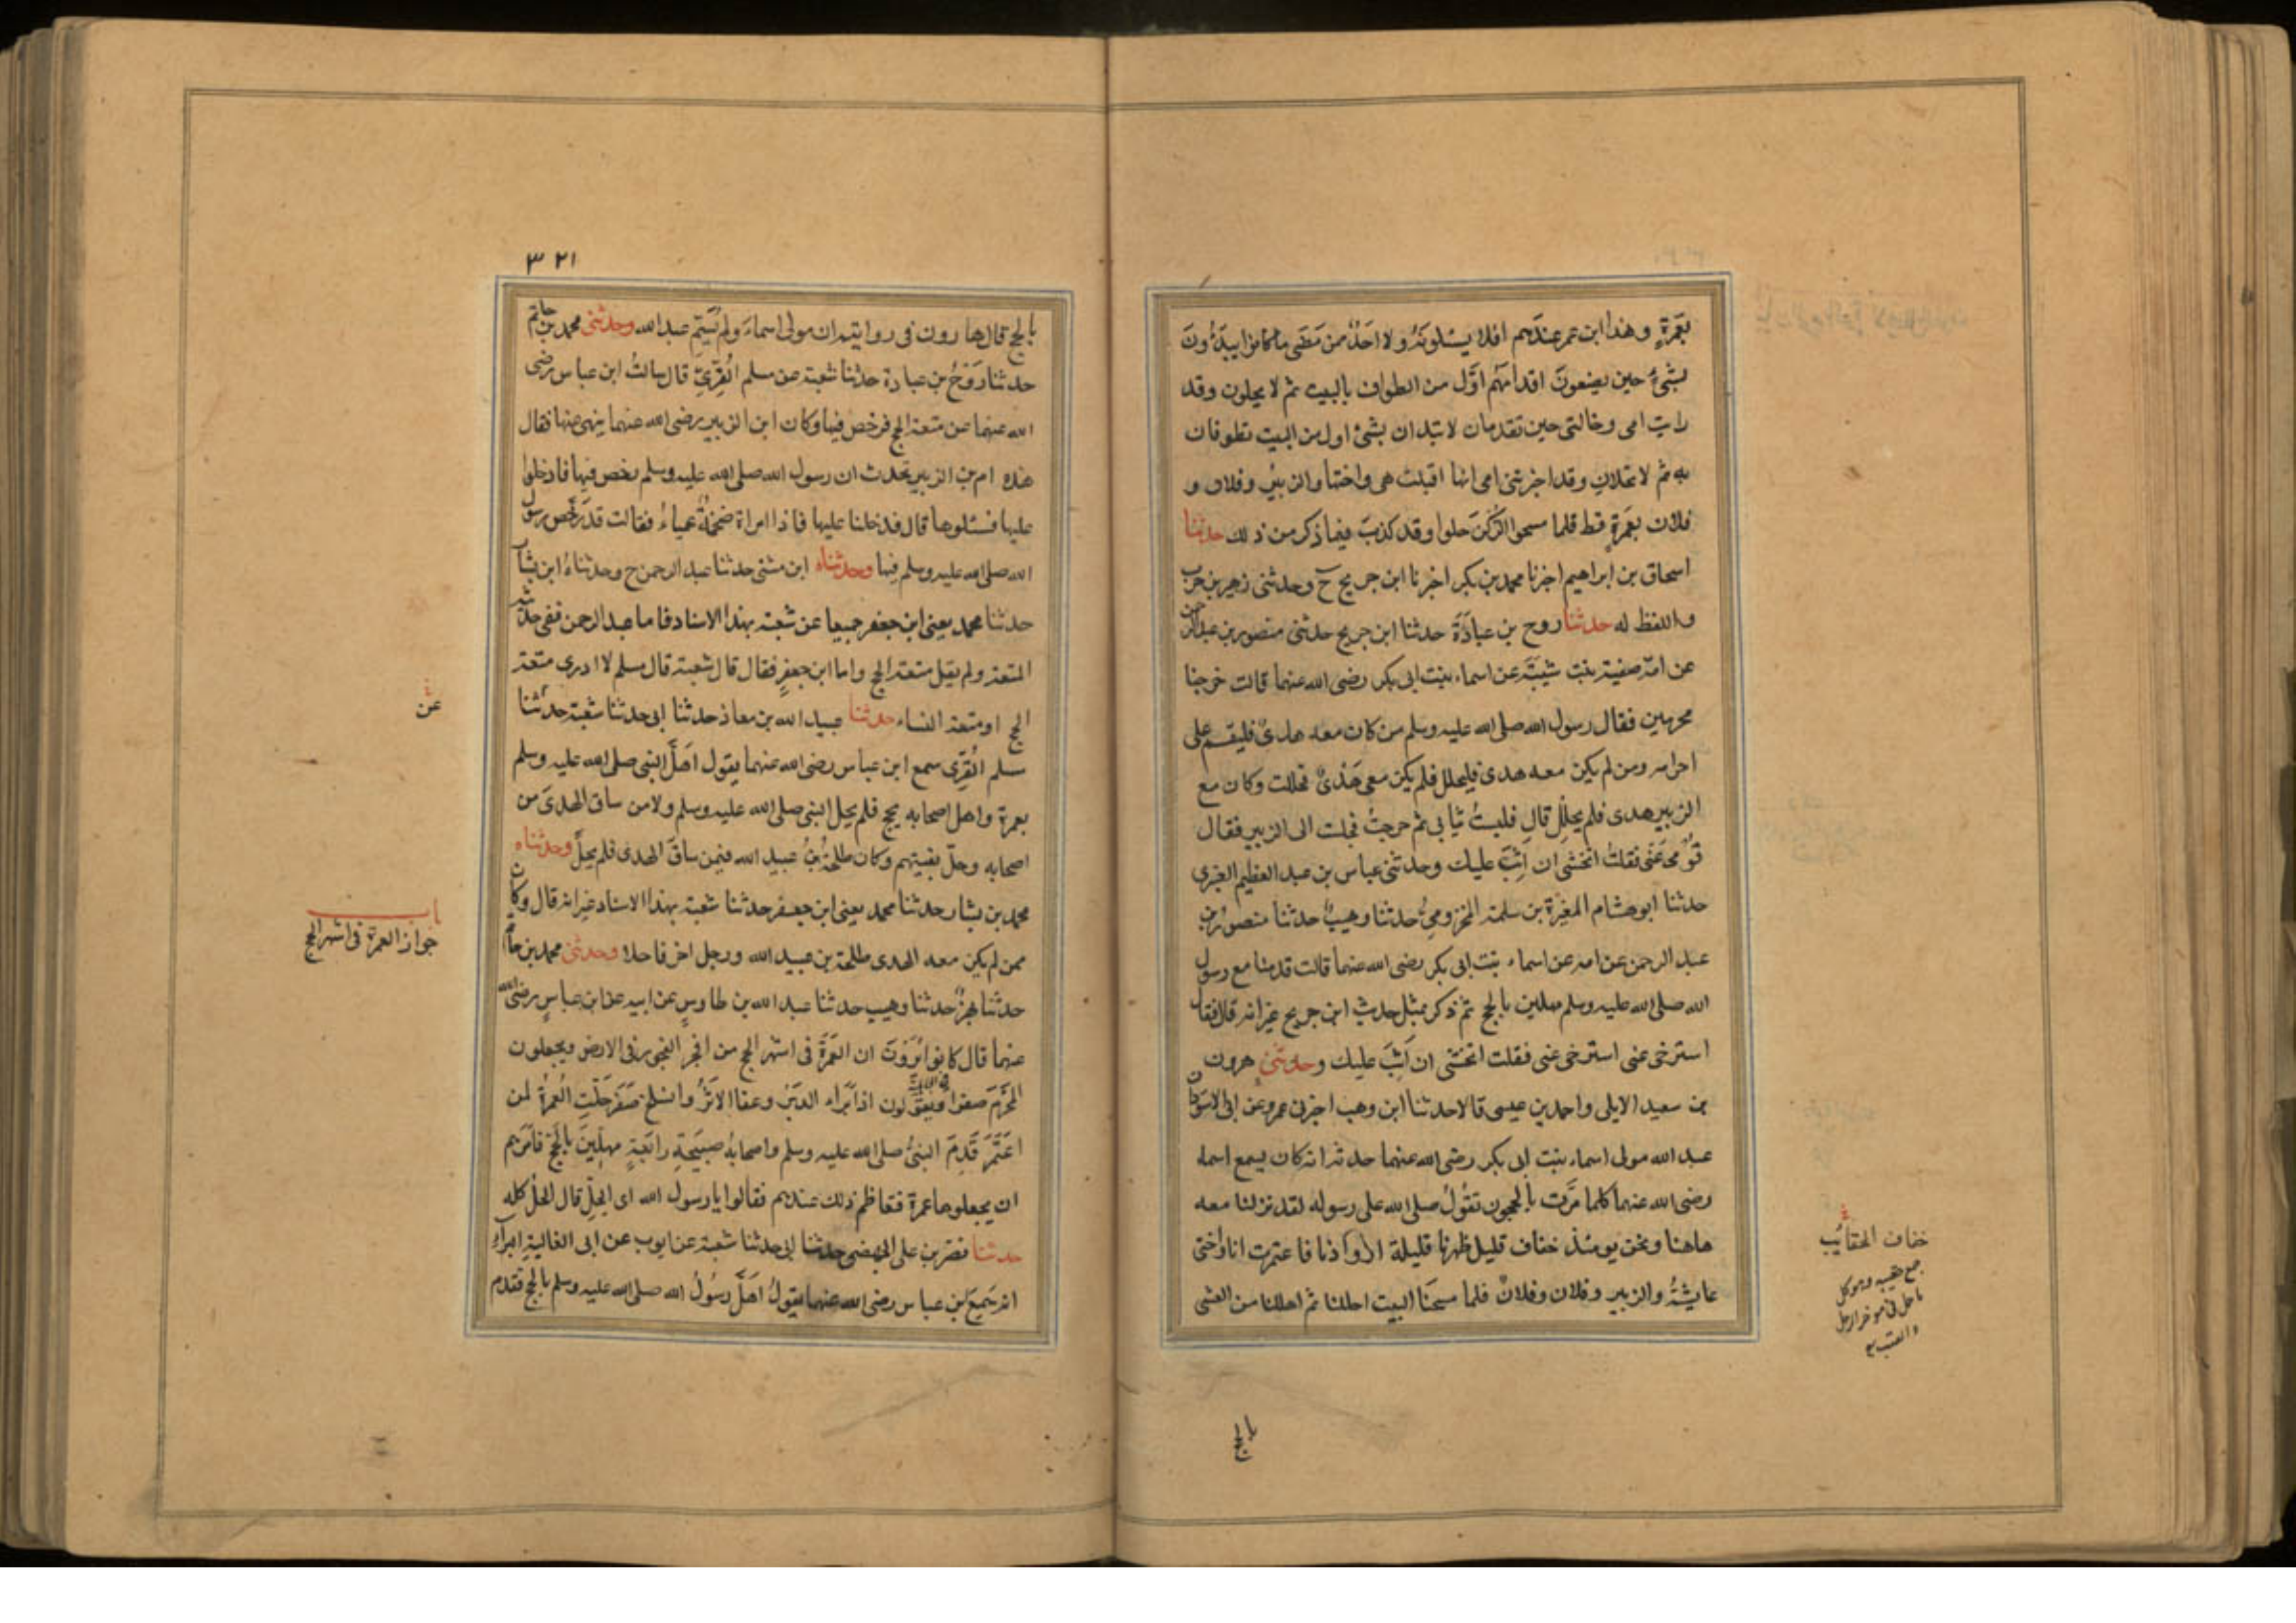 بعمرةٍ وهذا ابن عمر عندهم افلا يسئلونه ولا احدٌ ممن مَضَى ما كانوا يبدؤنَ
بشیٔ حين يضعونَ اقدامهم اوّل من الطواف بالبيت ثم لا يحلون وقد
رايت امى وخالتى حين تقدمان لا تبتدان بشئ اول من البيت تطوفان
به ثم لا تحلان وقد اخبرتنى امى انها اقبلت هى واختها والزبير وفلان و
فلان بعمرةٍ قط فلما مسحوا الركنَ حلوا وقد كذبَ فيما ذكر من ذلك حدثنا
اسحاق بن ابراهيم اخبرنا محمد بن بكر اخبرنا ابن جريج ح وحدثنى زهير بن حرب
واللفظ له حدثنا روح بن عبادَةَ حدثنا ابن جريج حدثنى منصور بن عبدالرحمن
عن امّه صفية بنت شيبَةَ عن اسماء بنت ابى بكر رضى الله عنهما قالت خرجنا
محرمين فقال رسول الله صلى الله عليه وسلم من كان معه هدىٌ فليقم على
احرامه ومن لم يكن معه هدى فليحلل فلم يكن معى هَدْىٌ فحللت وكان مع
الزبير هدى فلم يحلل قال فلبستُ ثيابى ثم خرجتُ فجلست الى الزبير فقال
قومى عَنّى فقلتُ اتخشى ان اَثِبَ عليك وحدثنى عباس بن عبد العظيم العنبرى
حدثنا ابو هشام المغيرة بن سلمة المخزومىُّ حدثنا وهيبٌ حدثنا منصور بن
عبد الرحمن عن امه عن اسماء بنت ابى بكر رضى الله عنهما قالت قدمنا مع رسول
الله صلى الله عليه وسلم مهلين بالحج ثم ذكر بمثل حديث ابن جريج غير انه قال فقال
استرخى عنى استرخى عنى فقلت اتخشى ان اَثِبَ عليك وحدثنى هرون
بن سعيد الايلى واحمد بن عيسى قالا حدثنا ابن وهب اخبرنى عمرو عن ابى الاسود ان
عبد الله مولى اسماء بنت ابى بكر رضى الله عنهما حدثه انه كان يسمع اسماء
رضى الله عنهما كلما مرَّت بالحجون تقولُ صلى الله على رسوله لقد نزلنا معه
هاهنا ونحن يومئذ خفاف قليل ظهرنا قليلة ازوادنا فاعتمرت انا واختى
عايشةُ والزبير وفلان وفلانٌ فلما مسحنَا البيت احللنا ثم اهللنا من العشى
خفاف الحقائب
جمع حقيبه وهو كل
ما حمل فى موخر الرحل
والقتب
بالحج
٣٢١
بالحج قال هارون فى روايته ان مولى اسماءَ ولم يُسَمِّ عبد الله وحدثنى محمد بن حاتم
حدثنا رَوْحُ بن عبادة حدثنا شعبة عن مسلم القُرِّىِّ قال سالتُ ابن عباس رضى
الله عنهما عن متعة الحج فرخص فيها وكان ابن الزبير رضى الله عنهما ينهى عنها فقال
هذه ام بن الزبير تحدث ان رسول الله صلى الله عليه وسلم رخص فيها فادخلوا
عليها فسئلوها قال فدخلنا عليها فاذا امراة ضخمةٌ عمياءُ فقالت قد رخص رسول
الله صلى الله عليه وسلم فيها وحدثناه ابن مثنى حدثنا عبد الرحمن ح وحدثناهُ ابن بشار
حدثنا محمد يعنى ابن جعفر جميعا عن شعبة بهذا الاسناد فاما عبد الرحمن ففى حديثه
المتعة ولم يقل متعة الحج واما ابن جعفرٍ فقال قال شعبة قال مسلم لا ادرى متعة
الحج او متعة النساء حدثنا عبيد الله بن معاذ حدثنا ابى حدثنا شعبة حدثنا
مسلم القُرِّى سمع ابن عباس رضى الله عنهما يقول اَهَلَّ النبى صلى الله عليه وسلم
بعمرة واهل اصحابه بحج فلم يحل النبى صلى الله عليه وسلم ولا من ساق الهدىَ من
اصحابه وحلّ بقيتهم وكان طلحةُ بنُ عبيد الله فيمن ساقَ الهدى فلم يحلَّ وحدثناه
محمد بن بشار حدثنا محمد يعنى ابن جعفر حدثنا شعبة بهذا الاسناد غير انه قال وكان
ممن لم يكن معه الهدى طلحة بن عبيد الله ورجل اخر فاحلا وحدثنى محمد بن حاتم
حدثنا بهزٌ حدثنا وهيب حدثنا عبد الله بن طاوسٍ عن ابيه عن ابن عباسٍ رضى الله
عنهما قال كانوا يَرَوْنَ ان العمرَةَ فى اشهر الحج من افجر الفجور فى الارض ويجعلون
المحرّمَ صفرا ويقولون اذا بَرَاء الدبَرْ وعفا الاثَرْ وانسلخ صَفَر حَلّتِ العُمرةُ لمن
اعتَمَرَ قَدِمَ النبىُّ صلى الله عليه وسلم واصحابهُ صبيحَةَ رابعَةٍ مهلِّينَ بالحَجّ فاَمَرَهم
ان يجعلوها عمرة فتعاظم ذلك عندهم فقالوا يا رسول الله اى الحِلِّ قال الحلُّ كله
حدثنا نصر بن على الجهضمى حدثنا ابى حدثنا شعبة عن ايوب عن ابى العالية البراءِ
انه سَمِعَ ابن عباس رضى الله عنهما يقولُ اهَلَّ رسُولُ الله صلى الله عليه وسلم بالحج فقدم
عن
باب
جواز العمرة فى اشهر الحج